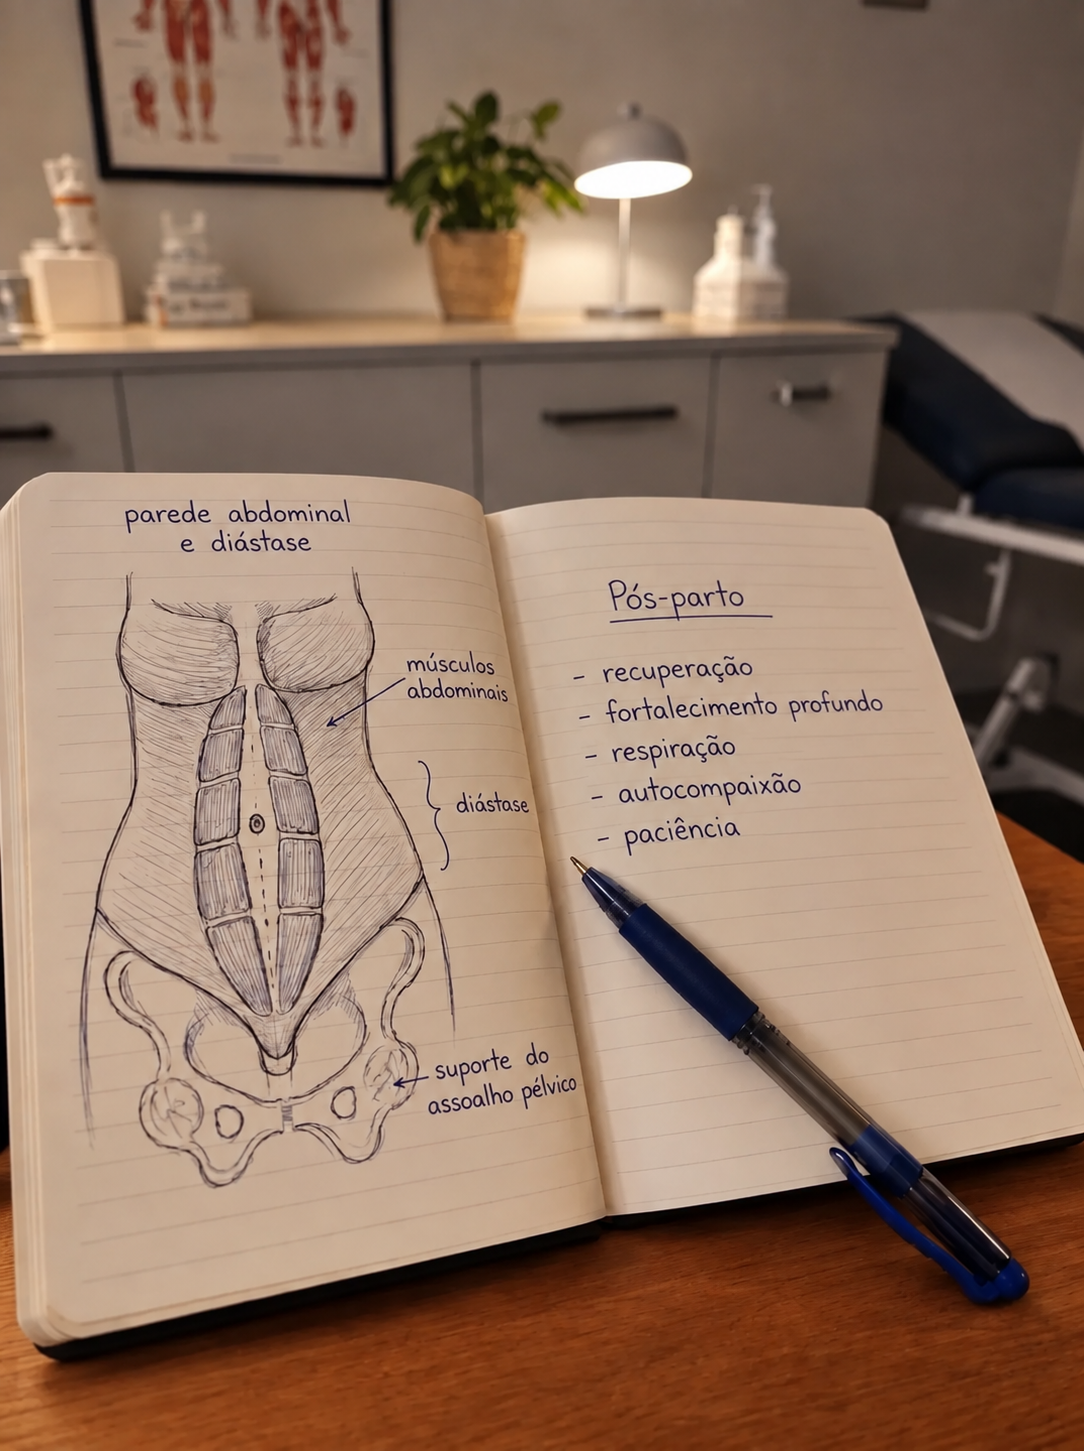 parede abdominal
e diástase
músculos
abdominais
diástase
suporte do
assoalho pélvico
Pós-parto
- recuperação
- fortalecimento profundo
- respiração
- autocompaixão
- paciência